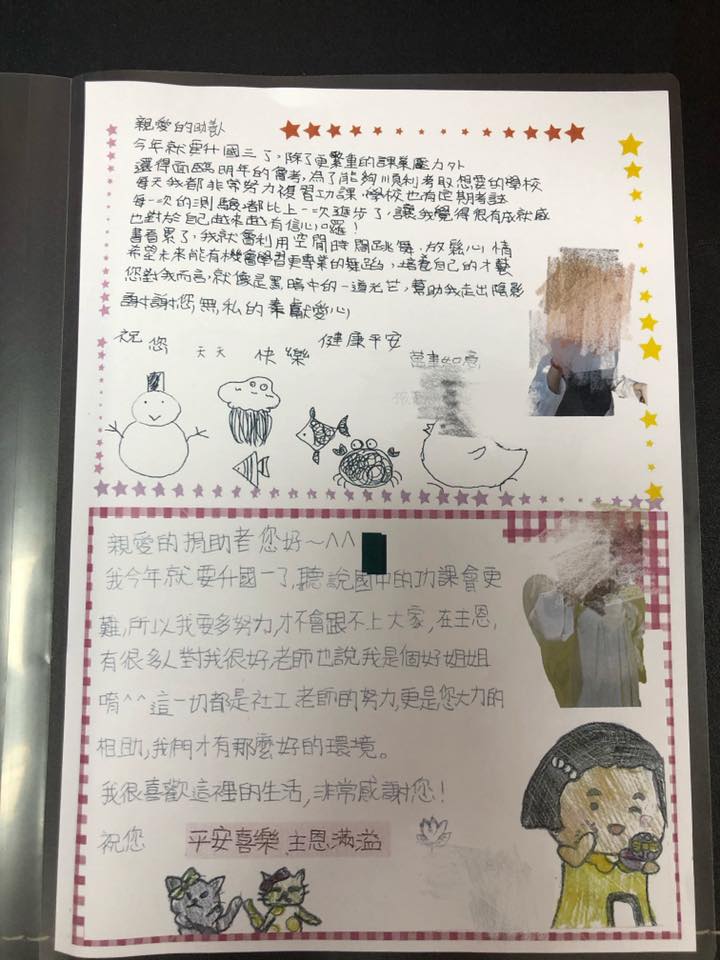 親愛的
今年就要升國三了，除了更繁重的課業壓力外
還得面臨明年的會考，為了能夠順利考取想要的學校
每天我都非常努力複習功課，學校也有定期考試
每一次的測驗都比上一次進步了，讓我覺得很有成就感
也對於自己越來越有信心囉！
書看累了，我就會利用空閒時間跳舞，放鬆心情
希望未來能有機會學習更專業的舞蹈，培養自己的才藝
您對我而言，就像是黑暗中的一道光芒，幫助我走出陰影
謝謝您無私的奉獻愛心
祝您 天天 快樂 健康平安 萬事如意
親愛的捐助者您好～^^
我今年就要升國一了，聽說國中的功課會更
難，所以我要多努力，才不會跟不上大家，在主恩，
有很多人對我很好，老師也說我是個好姐姐
唷^^這一切都是社工老師的努力，更是您大力的
相助，我們才有那麼好的環境。
我很喜歡這裡的生活，非常感謝您！
祝您 平安喜樂 主恩滿溢